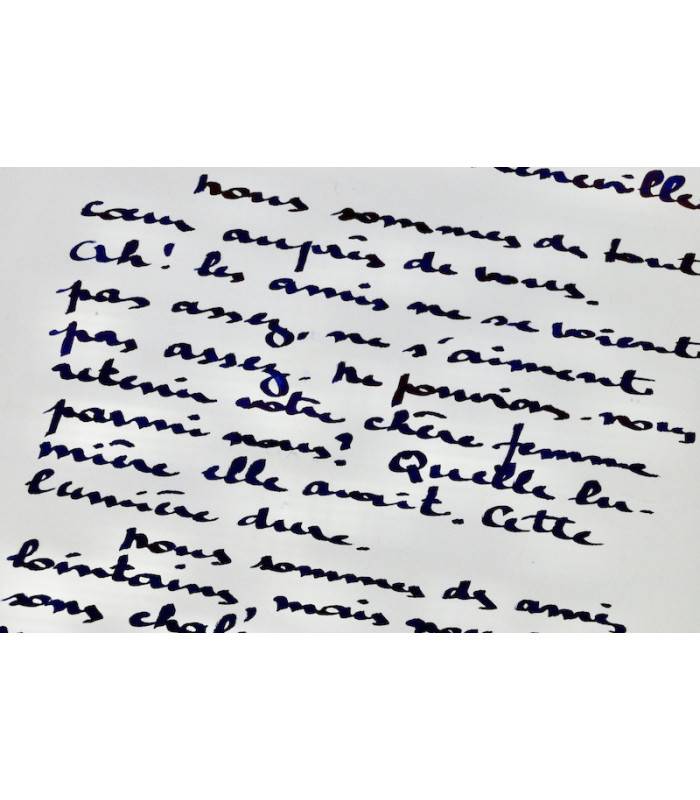 nous sommes de tout
cœur auprès de vous.
Ah! les amis ne se voient
pas assez, ne s'aiment
pas assez. Ne pouvions-nous
retenir votre chère femme
parmi nous? Quelle lu-
mière elle avait. Cette
lumière dure.
Nous sommes des amis
lointains, mais
sans